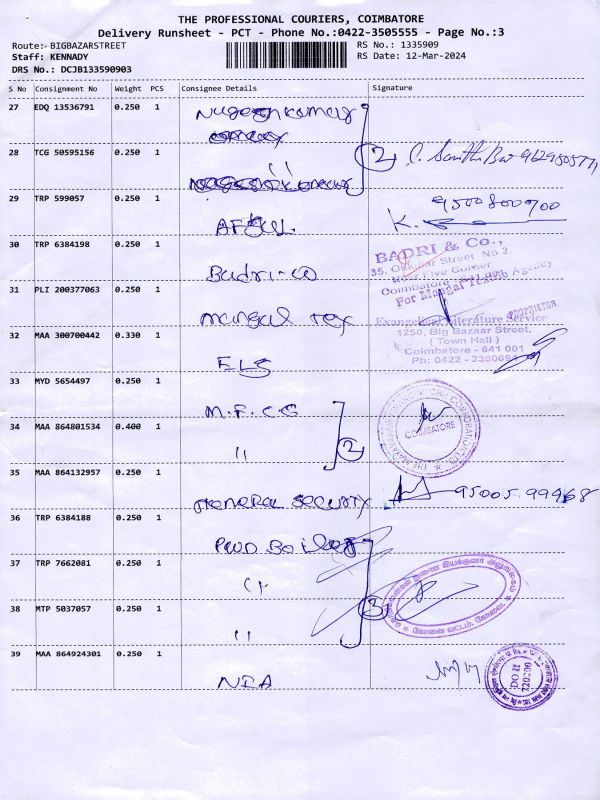 THE PROFESSIONAL COURIERS, COIMBATORE
Delivery Runsheet - PCT - Phone No.:0422-3505555 - Page No.:3
Route: BIGBAZARSTREET
RS No.: 1335909
Staff: KENNADY
RS Date: 12-Mar-2024
DRS No.: DCJB133590903
S No Consignment No Weight PCS Consignee Details Signature
27 EDQ 13536791 0.250 1
Nugeshkumar
28 TCG 50595156 0.250 1
"
2
29 TRP 599057 0.250 1
9500800700
K.
30 TRP 6384198 0.250 1
Badri-co
BADRI & Co.,
Coimbatore
For Mangal Tex
Agency
PROPRIETOR
31 PLI 200377063 0.250 1
mangal Tex
Evangelical Literature Service
1250, Big Bazaar Street,
( Town Hall )
Coimbatore - 641 001
32 MAA 300700442 0.330 1
ELS
33 MYD 5654497 0.250 1
M.F.C.G
COIMBATORE
34 MAA 864801534 0.400 1
"
2
35 MAA 864132957 0.250 1
General Security
95005 99968
36 TRP 6384188 0.250 1
37 TRP 7662081 0.250 1
"
3
38 MTP 5037057 0.250 1
"
39 MAA 864924301 0.250 1
NIA
DO II
720200